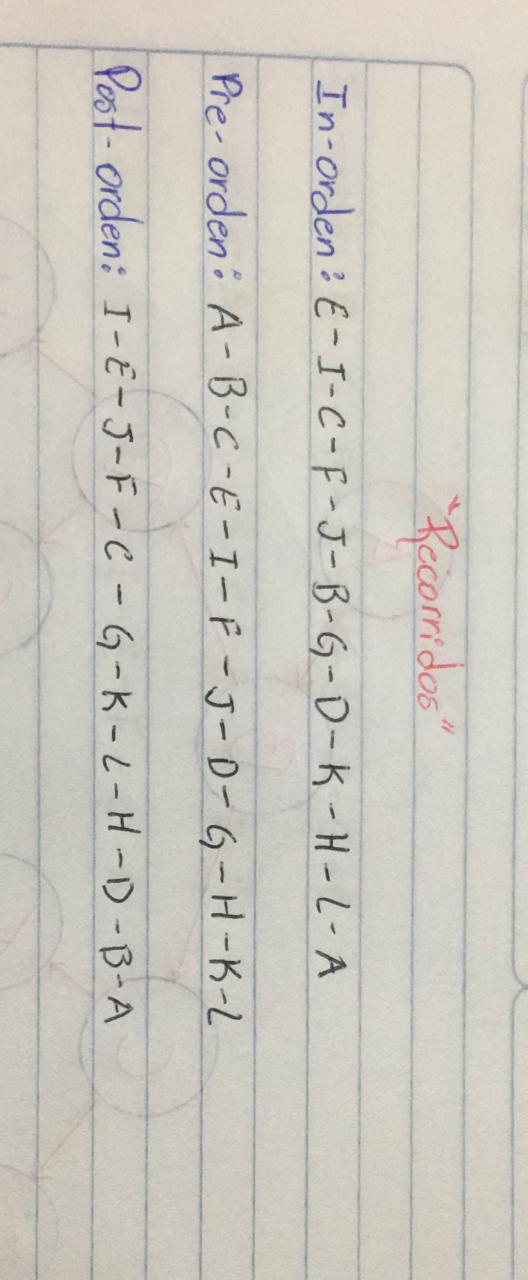 "Recorridos"
In-orden: E-I-C-F-J-B-G-D-K-H-L-A
Pre-orden: A-B-C-E-I-F-J-D-G-H-K-L
Post-orden: I-E-J-F-C-G-K-L-H-D-B-A